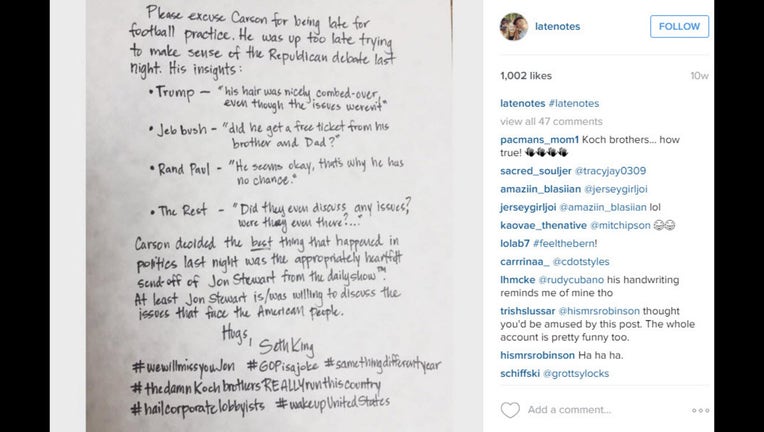 Please excuse Carson for being late for
football practice. He was up too late trying
to make sense of the Republican debate last
night. His insights:
• Trump — "his hair was nicely combed-over,
even though the issues weren't"
• Jeb bush - "did he get a free ticket from his
brother and Dad?"
• Rand Paul - "He seems okay, that's why he has
no chance."
• The Rest - "Did they even discuss any issues?
were they even there?..."
Carson decided the best thing that happened in
politics last night was the appropriately heartfelt
send-off of Jon Stewart from the dailyshow™.
At least Jon Stewart is/was willing to discuss the
issues that face the American people.
Hugs,
Seth King
#wewillmissyouJon #GOPisajoke #somethingdifferentyear
#thedamnKochbrothersREALLYrunthiscountry
#hailcorporatelobbyists #wakeupUnitedStates
latenotes
FOLLOW
1,002 likes 10w
latenotes #latenotes
view all 47 comments
pacmans_mom1 Koch brothers... how
true!
sacred_souljer @tracyjay0309
amaziin_blasiian @jerseygirljoi
jerseygirljoi @amaziin_blasiian lol
kaovae_thenative @mitchipson
lolab7 #feelthebern!
carrrinaa_ @cdotstyles
lhmcke @rudycubano his handwriting
reminds me of mine tho
trishslussar @hismrsrobinson thought
you'd be amused by this post. The whole
account is pretty funny too.
hismrsrobinson Ha ha ha.
schiffski @grottsylocks
Add a comment...